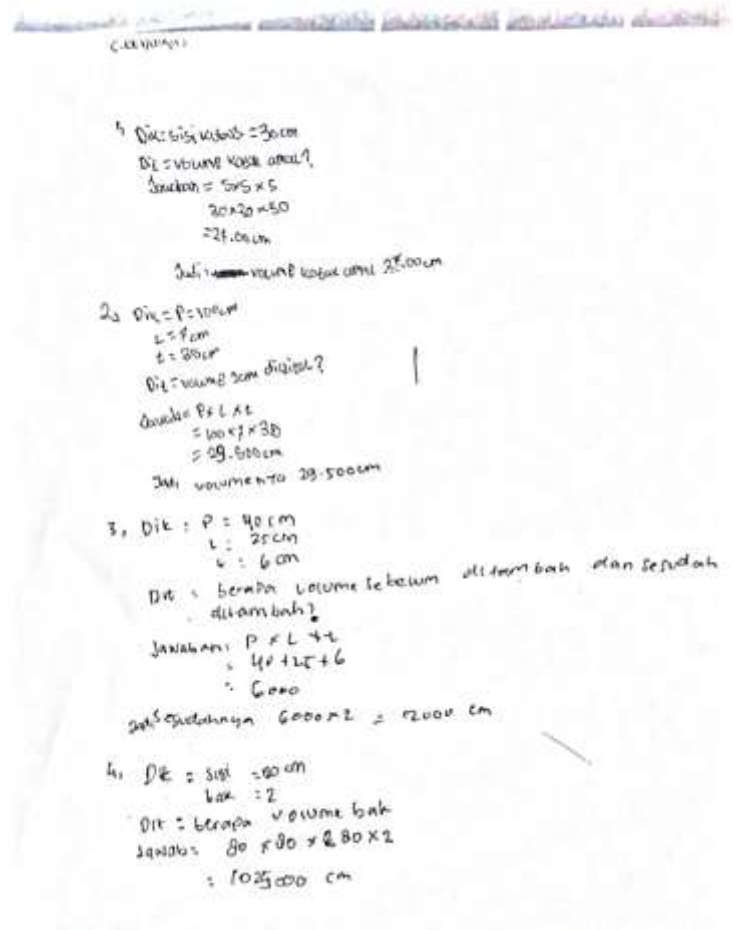 1, Dik = sisi kubus = 30 cm
Dit = volume kotak amal?
Jawaban = s×s×s
30×30×30
=27.00 cm
Jadi volume kotak amal 27.00 cm
2, Dik = P = 100 cm
t = 30 cm
Dit = volume jam digital?
Jawab = P × L × t
= 29.500 cm
Jadi volumenya 29.500 cm
3, Dik : P = 40 cm
25 cm
6 cm
Dit : berapa volume sebelum ditambah dan sesudah
ditambah?
Jawaban: P × L × t
: 40 +25 +6
: 6000
sesudahnya 6000×2 = 12000 cm
4, Dik : sisi = 80 cm
bak : 2
Dit : berapa volume bak
Jawab : 80 × 80 × 80 × 2
: 1025000 cm